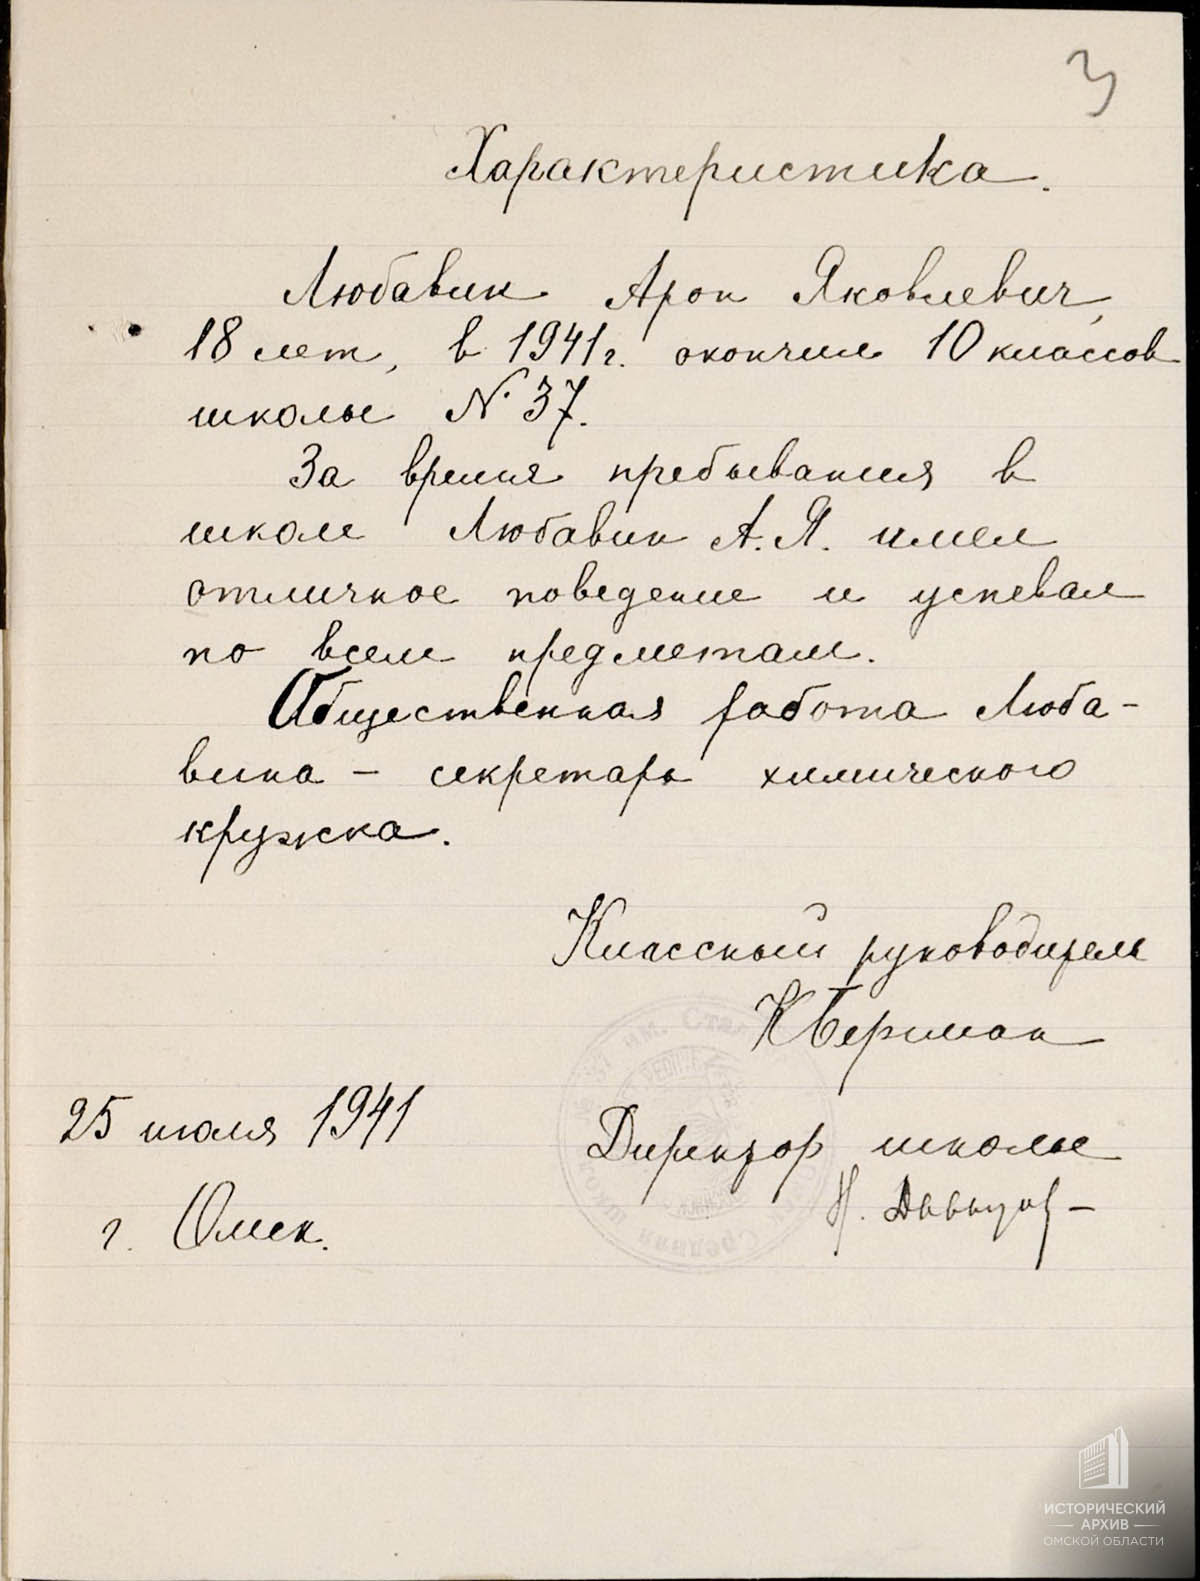 3
Характеристика.
Любавин Арон Яковлевич,
18 лет, в 1941г. окончил 10 классов
школы № 37.
За время пребывания в
школе Любавин А.Я. имел
отличное поведение и успевал
по всем предметам.
Общественная работа Люба-
вина – секретарь химического
кружка.
Классный руководитель
КБерман
25 июля 1941
Директор школы
г. Омск.
им. Стал
Средняя школа
ИСТОРИЧЕСКИЙ
АРХИВ
ОМСКОЙ ОБЛАСТИ